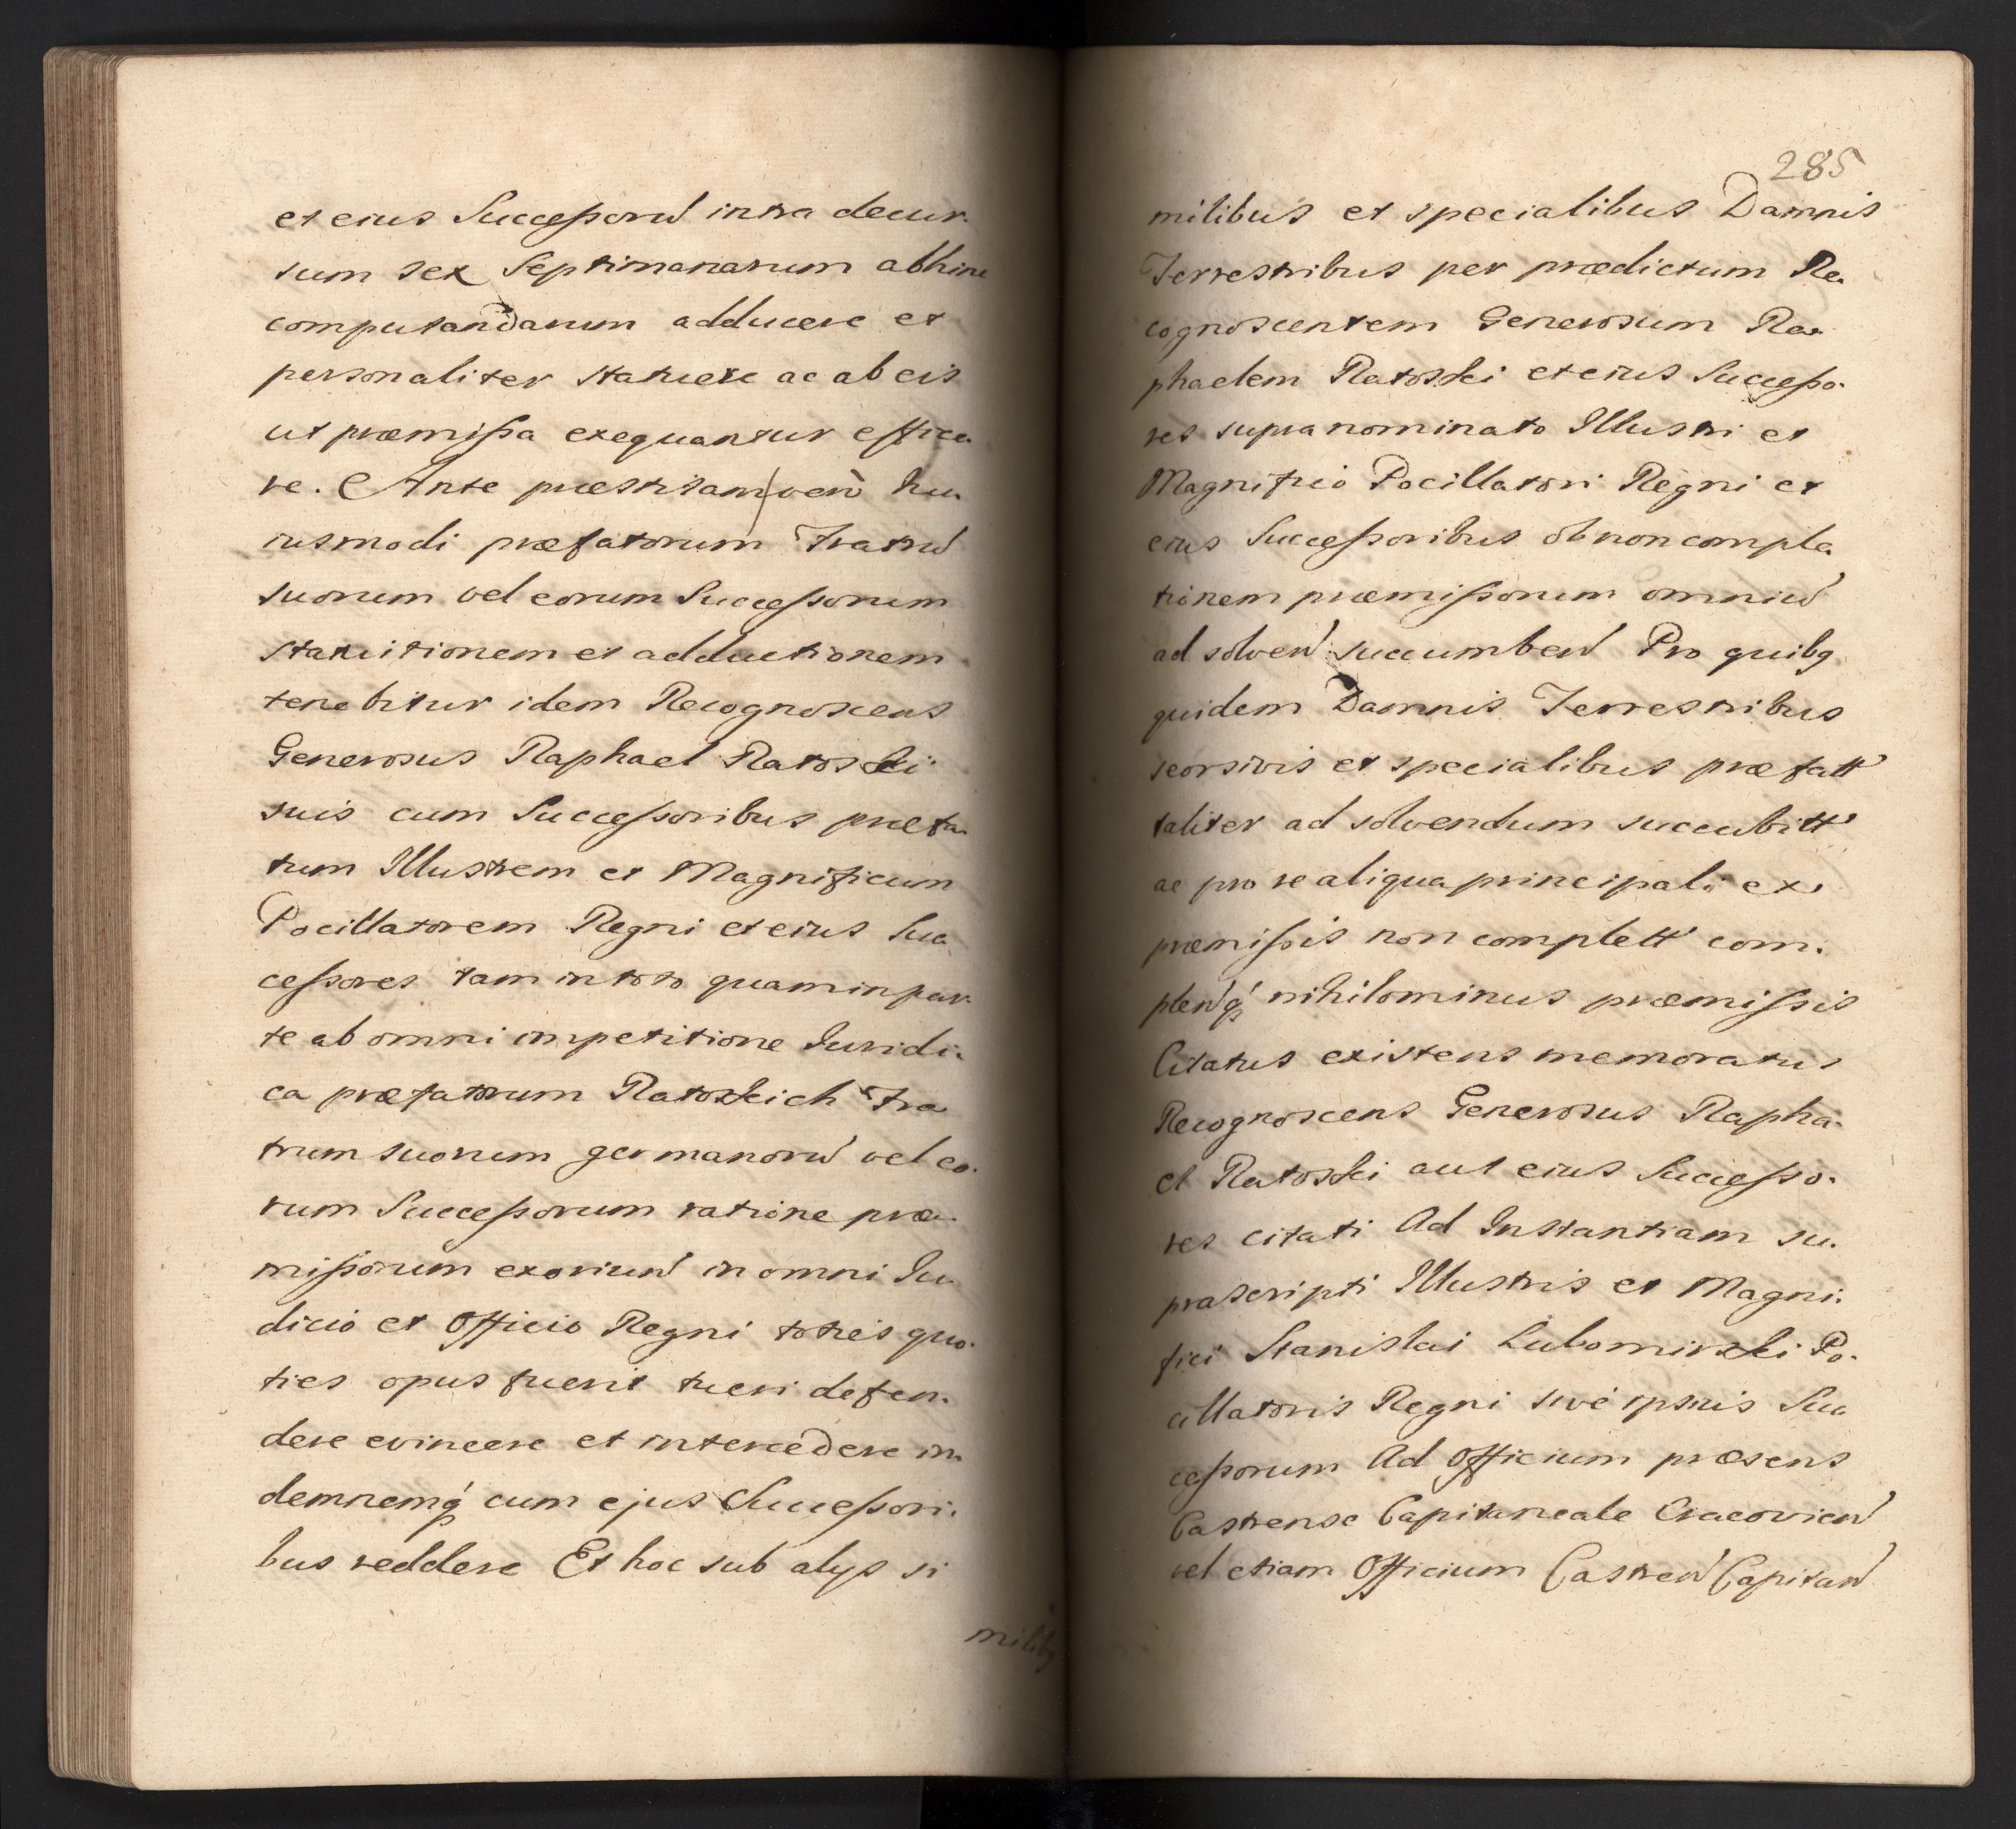 et eius Successorū intra decur-
sum sex Septimanarum abhinc
computandarum adducere et
personaliter statuere ac ab eis
ut præmissa exequantur effice-
re. Ante præstitam verò hu-
iusmodi præfatorum Fratrū
suorum vel eorum Successorum
statuitionem et adductionem
tenebitur idem Recognoscens
Generosus Raphael Ratoski
suis cum Successoribus præfa-
tum Illustrem et Magnificum
Pocillatorem Regni et eius Suc-
cessores tam in toto quam in par-
te ab omni impetitione Iuridi-
ca præfatorum Ratoskich Fra-
trum suorum germanorū vel eo-
rum Successorum ratione præ-
missorum exoriend in omni Iu-
dicio et Officio Regni toties quo-
ties opus fuerit tueri defen-
dere evincere et intercedere in-
demnemq́ cum ejus Successori-
bus reddere Et hoc sub alys si
militbꝫ
285
milibus et specialibus Damnis
Terrestribus per prædictum Re-
cognoscentem Generosum Ra-
phaelem Ratoski et eius Successo-
res supra nominato Illustri et
Magnifico Pocillatori Regni et
eius Successoribus ob non comple-
tionem præmissorum omniū
ad solvend succumbend Pro quibꝫ
quidem Damnis Terrestribus
seorsivis et specialibus præfatt
taliter ad solvendum succubitt
ac pro re aliqua principali ex
præmissis non complett com-
plendq́ nihilominus præmissis
Citatus existens memoratus
Recognoscens Generosus Rapha-
el Ratoski aut eius Successo-
res citati Ad Instantiam su-
prascripti Illustris et Magni-
fici Stanislai Lubomirski Po-
cillatoris Regni sive ipsius Suc-
cessorum Ad Officium præsens
Castrense Capitaneale Cracovien
vel etiam Officium Castren Capitan